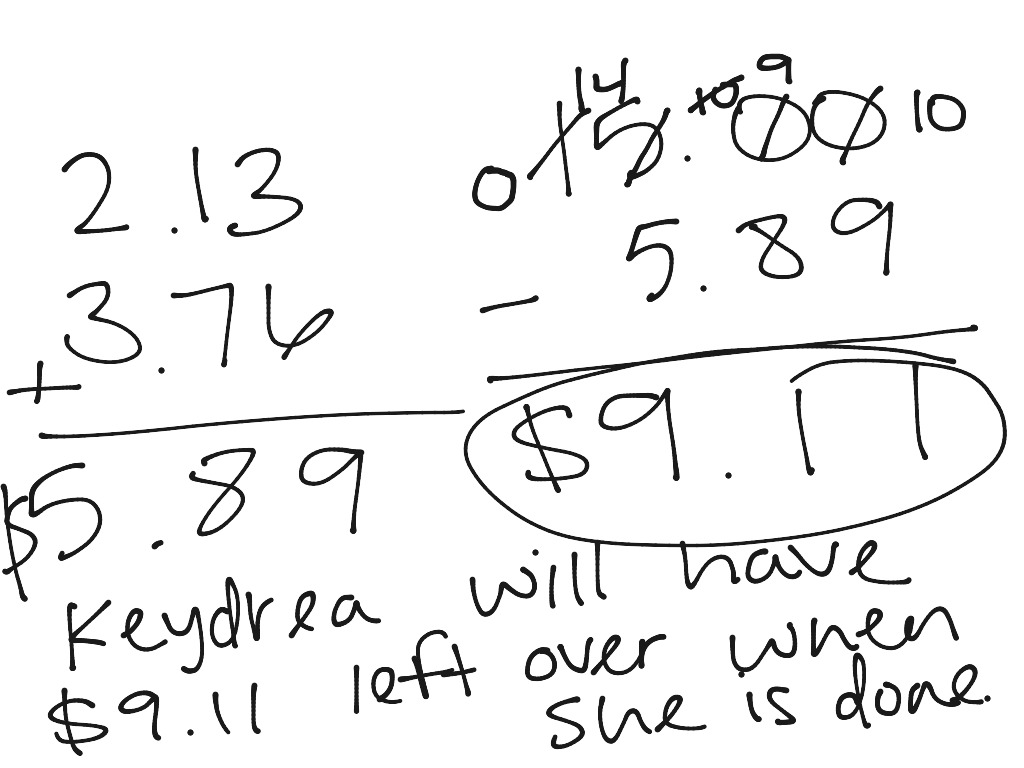 2.13
+ 3.76
$5.89
14 10 9
0 15.00 10
- 5.89
$9.11
Keydrea will have
$9.11 left over when
she is done.